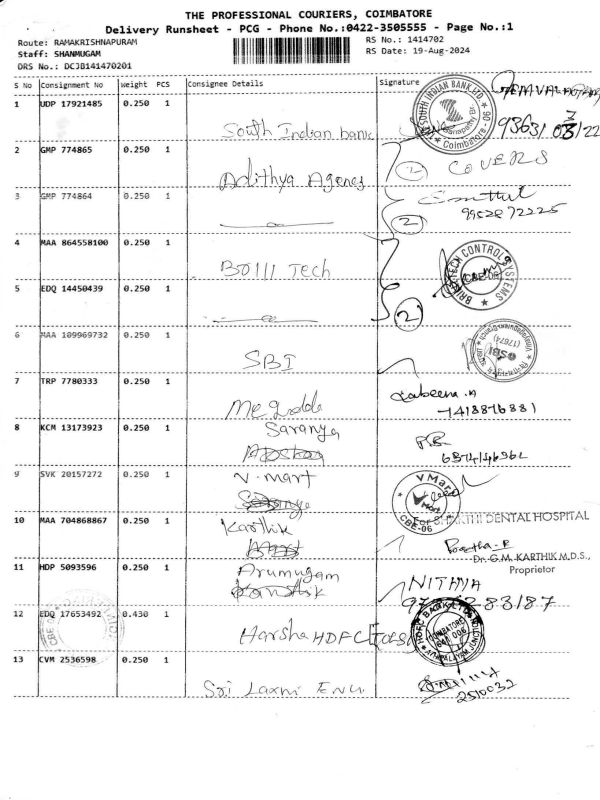 THE PROFESSIONAL COURIERS, COIMBATORE
Delivery Runsheet - PCG - Phone No.:0422-3505555 - Page No.:1
Route: RAMAKRISHNAPURAM
RS No.: 1414702
Staff: SHANMUGAM
RS Date: 19-Aug-2024
DRS No.: DCJB141470201
S No Consignment No Weight PCS Consignee Details Signature
1 UDP 17921485 0.250 1
South Indian bank
SOUTH INDIAN BANK LTD
Coimbatore - 06
2 GMP 774865 0.250 1
Adithya Agency
2 COVERS
3 GMP 774864 0.250 1
2
9952872225
4 MAA 864558100 0.250 1
Tech
CONTROL SYSTEMS
5 EDQ 14450439 0.250 1
2
6 MAA 109969732 0.250 1
SBI
SBI
(17874)
7 TRP 7780333 0.250 1
7418876881
8 KCM 13173923 0.250 1
Saranya
9 SVK 20157272 0.250 1
V-mart
V Mart
CBE-06
10 MAA 704868867 0.250 1
Karthik
For SHAKTHI DENTAL HOSPITAL
Dr. G.M. KARTHIK M.D.S.,
Proprietor
11 HDP 5093596 0.250 1
Arumugam
NITHYA
12 EDQ 17653492 0.430 1
Harsha HDFC
HDFC BANK LTD
COIMBATORE
13 CVM 2536598 0.250 1
Sri Laxmi
2510032